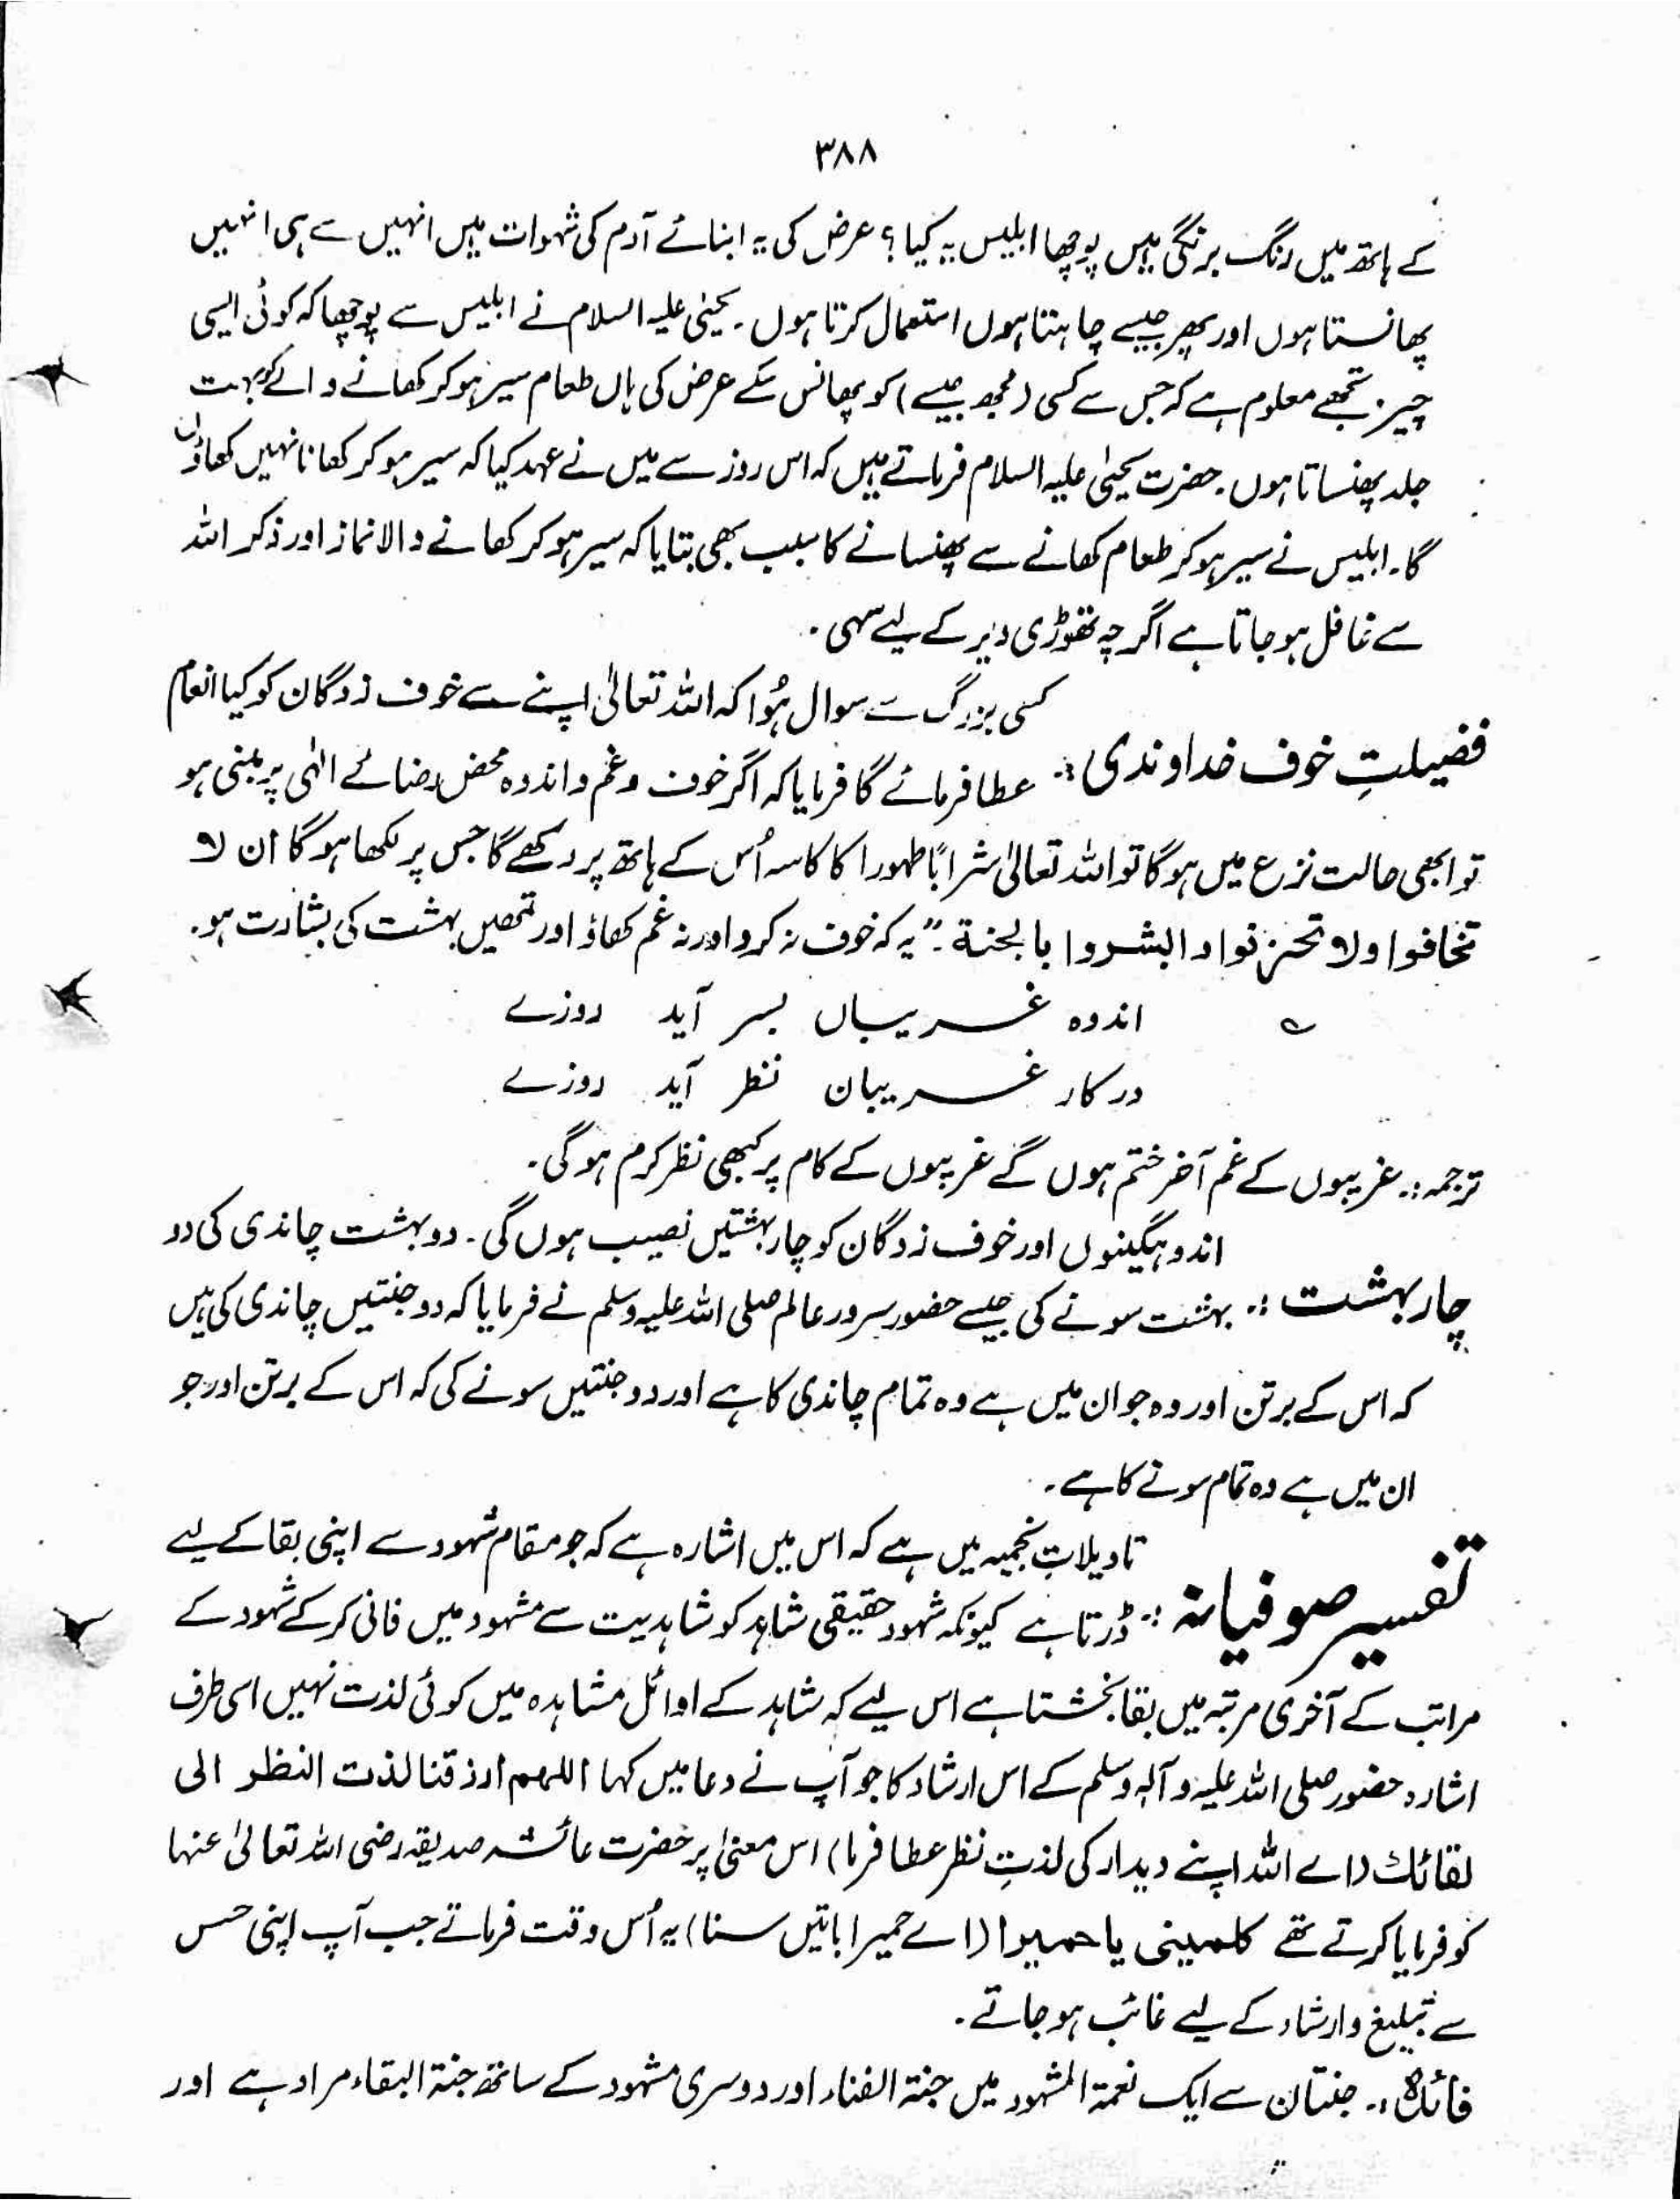 ۳۸۸
کے ہاتھ میں رنگ برنگی ہیں پوچھا ابلیس یہ کیا؟ عرض کی یہ ابنائے آدم کی شہوات ہیں انہیں سے ہی انہیں
پھانستا ہوں اور پھر جیسے چاہتا ہوں استعمال کرتا ہوں۔ یحییٰ علیہ السلام نے ابلیس سے پوچھا کہ کوئی ایسی
چیز تجھے معلوم ہے کہ جس سے کسی (مجھ جیسے) کو پھانس سکے عرض کی ہاں طعام سیر ہو کر کھانے والے کو بہت
جلد پھنساتا ہوں۔ حضرت یحییٰ علیہ السلام فرماتے ہیں کہ اس روز سے میں نے عہد کیا کہ سیر ہو کر کھانا نہیں کھاؤں
گا۔ ابلیس نے سیر ہو کر طعام کھانے سے پھنسانے کا سبب بھی بتایا کہ سیر ہو کر کھانے والا نماز اور ذکر اللہ
سے غافل ہو جاتا ہے اگرچہ تھوڑی دیر کے لیے سہی۔
کسی بزرگ سے سوال ہُوا کہ اللہ تعالیٰ اپنے سے خوف زدگان کو کیا انعام
فضیلتِ خوف خداوندی:۔ عطا فرمائے گا فرمایا کہ اگر خوف و غم و اندوہ محض رضائے الٰہی پر مبنی ہو
تو ابھی حالت نزع میں ہو گا تو اللہ تعالیٰ شراباً طہورا کا کاسہ اُس کے ہاتھ پر رکھے گا جس پر لکھا ہو گا ان لا
تخافوا ولا تحزنوا و البشروا بالجنة۔" یہ کہ خوف نہ کرو اور نہ غم کھاؤ اور تمھیں بہشت کی بشارت ہو۔
؎ اندوہ غریباں بسر آید روزے
درکار غریبان نظر آید روزے
ترجمہ:۔ غریبوں کے غم آخر ختم ہوں گے غریبوں کے کام پر کبھی نظر کرم ہو گی۔
اندوہگینوں اور خوف زدگان کو چار بہشتیں نصیب ہوں گی۔ دو بہشت چاندی کی دو
چار بہشت:۔ بہشت سونے کی جیسے حضور سرور عالم صلی اللہ علیہ وسلم نے فرمایا کہ دو جنتیں چاندی کی ہیں
کہ اس کے برتن اور وہ جو ان میں ہے وہ تمام چاندی کا ہے اور دو جنتیں سونے کی کہ اس کے برتن اور جو
ان میں ہے وہ تمام سونے کا ہے۔
تاویلاتِ نجمیہ میں ہے کہ اس میں اشارہ ہے کہ جو مقام شہود سے اپنی بقا کے لیے
تفسیر صوفیانہ:۔ ڈرتا ہے کیونکہ شہود حقیقی شاہد کو شاہدیت سے مشہود میں فانی کر کے شہود کے
مراتب کے آخری مرتبہ میں بقا بخشتا ہے اس لیے کہ شاہد کے اوائل مشاہدہ میں کوئی لذت نہیں اسی طرف
اشارہ حضور صلی اللہ علیہ وآلہٖ وسلم کے اس ارشاد کا جو آپ نے دعا میں کہا اللہم ارزقنا لذت النظر الی
لقائك (اے اللہ اپنے دیدار کی لذتِ نظر عطا فرما) اس معنیٰ پر حضرت عائشہ صدیقہ رضی اللہ تعالیٰ عنہا
کو فرمایا کرتے تھے کلمینی یا حمیرا (اے حمیرا باتیں سنا) یہ اُس وقت فرماتے جب آپ اپنی حس
سے تبلیغ و ارشاد کے لیے غائب ہو جاتے۔
فائدہ:۔ جنتان سے ایک نعمۃ المشہود میں جنۃ الفناء اور دوسری مشہود کے ساتھ جنۃ البقاء مراد ہے اور